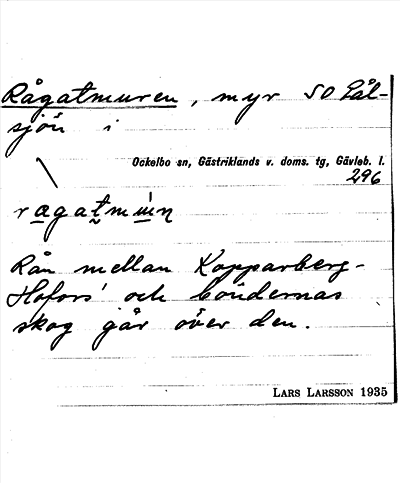 Rågatmuren, myr SO Eål-
sjön i
Ockelbo sn, Gästriklands v. doms. tg, Gävleb. l.
296
Rån mellan Kopparberg-
Hofors' och böndernas
skog går över den.
LARS LARSSON 1935